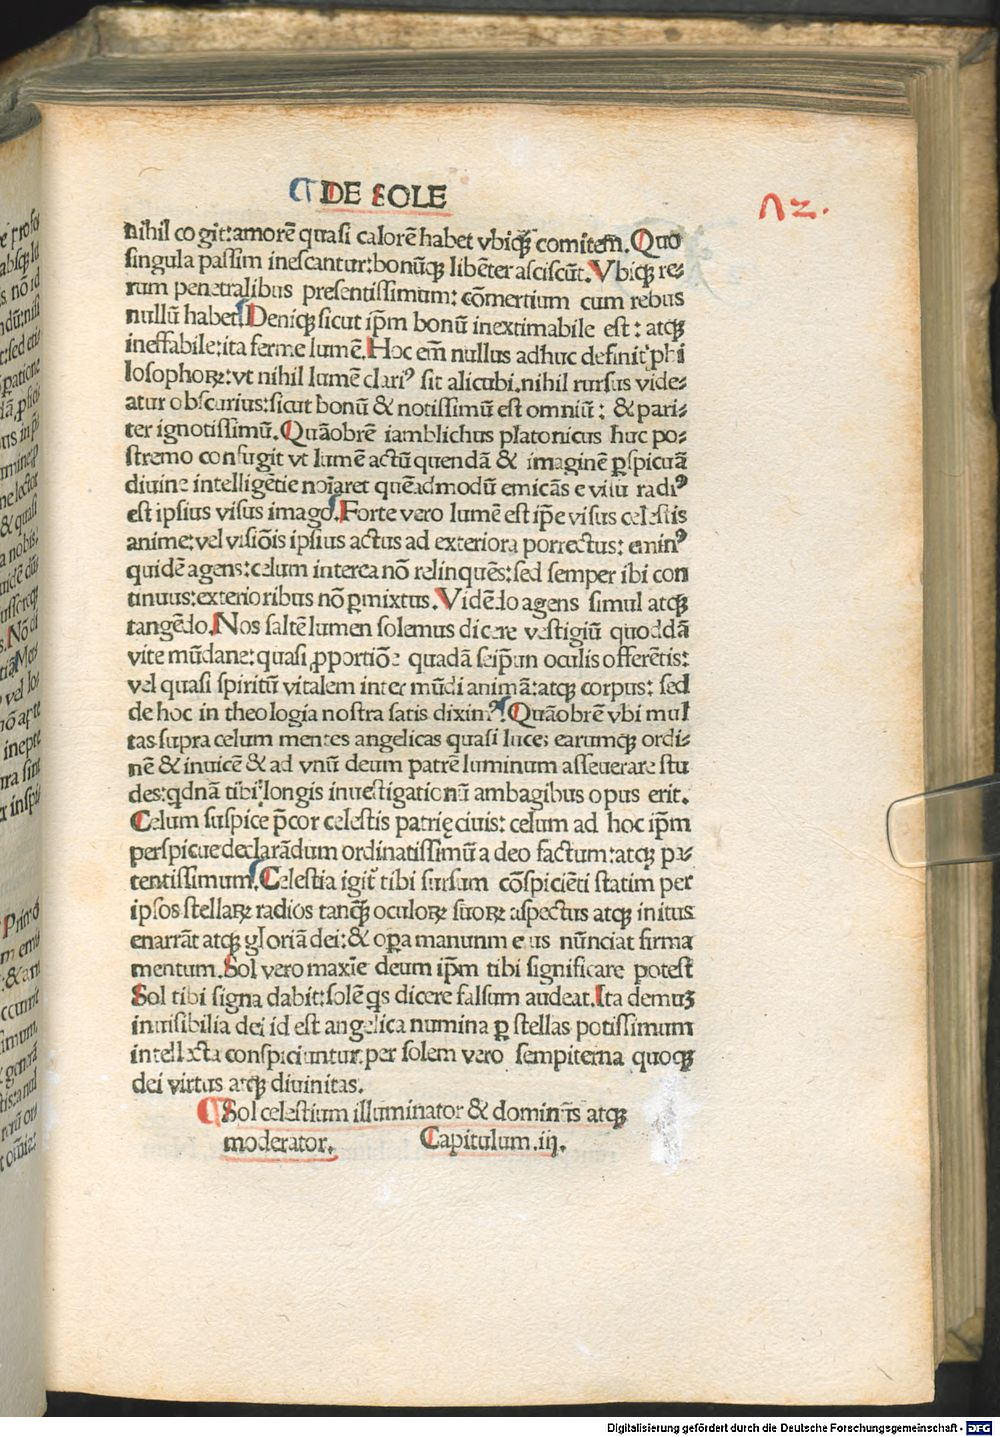 DE SOLE
12.
nihil cogit:amorē quasi calorē habet vbiqꝫ comitem. Quo
singula passim inescantur:bonūqꝫ libēter asciscūt. Vbiqꝫ re⸗
rum penetralibus presentissimum: cōmertium cum rebus
nullū habet. Deniqꝫ sicut ip̄m bonū inextimabile est: atqꝫ
ineffabile:ita ferme lumē. Hoc em̄ nullus adhuc definit phi
losophoꝝ:vt nihil lumē clariꝰ sit alicubi.nihil rursus vide⸗
atur obscurius:sicut bonū & notissimū est omniū: & pari⸗
ter ignotissimū. Quāobrē iamblichus platonicus huc po⸗
stremo confugit vt lumē actū quendā & imaginē ꝑspicuā
diuine intelligētie noīaret quēadmodū emicās e visu radiꝰ
est ipsius visus imago. Forte vero lumē est ip̄e visus celestis
anime:vel visiōis ipsius actus ad exteriora porrectus: eminꝰ
quidē agens:celum interea nō relinquēs:sed semper ibi con
tinuus:exterioribus nō ꝑmixtus. Vidēdo agens simul atqꝫ
tangēdo. Nos saltē lumen solemus dicere vestigiū quoddā
vite mūdane:quasi ꝓportiōe quadā seip̄am oculis offerētis:
vel quasi spiritū vitalem inter mūdi animā:atqꝫ corpus: sed
de hoc in theologia nostra satis diximꝰ. Quāobrē vbi mul
tas supra celum mentes angelicas quasi luces earumqꝫ ordi⸗
nē & inuicē & ad vnū deum patrē luminum asseuerare stu
des:qdnā tibi longis inuestigationū ambagibus opus erit.
Celum suspice p̄cor celestis patrię ciuis: celum ad hoc ip̄m
perspicue declarādum ordinatissimū a deo factum:atqꝫ pa⸗
tentissimum. Celestia igit̄ tibi sursum cōspiciēti statim per
ipsos stellaꝝ radios tanqꝫ̄ oculoꝝ suoꝝ aspectus atqꝫ nutus
enarrāt atqꝫ gloriā dei:& oꝑa manunm eius nūnciat firma
mentum. Sol vero maxīe deum ip̄m tibi significare potest
Sol tibi signa dabit:solē qs dicere falsum audeat. Ita demuꝫ
inuisibilia dei id est angelica numina ꝑ stellas potissimum
intellecta conspiciuntur.per solem vero sempiterna quoqꝫ
dei virtus atqꝫ diuinitas.
Sol celestium illuminator & dominus atqꝫ
moderator. Capitulum.iij.
Digitalisierung gefördert durch die Deutsche Forschungsgemeinschaft - DFG